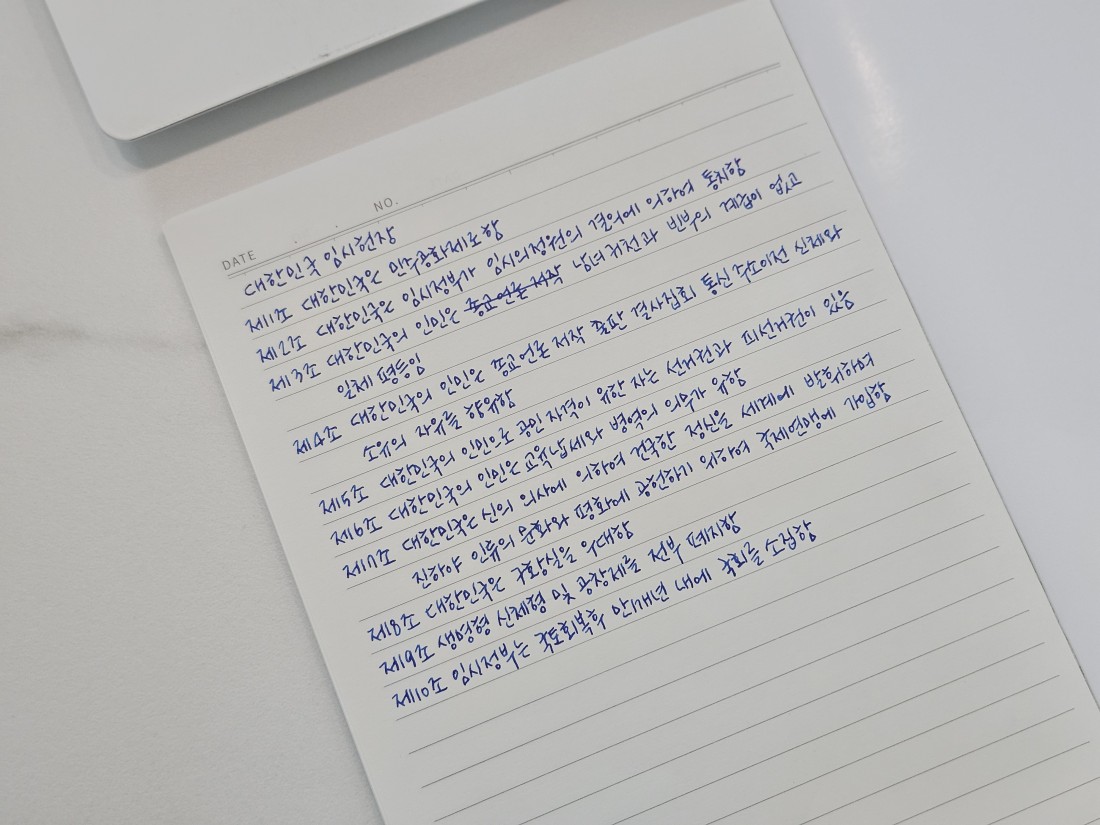 NO.
DATE
대한민국 임시헌장
제1조 대한민국은 민주공화제로 함
제2조 대한민국은 임시정부가 임시의정원의 결의에 의하여 통치함
제3조 대한민국의 인민은 종교언론 저작 남녀귀천과 빈부의 계급이 없고
일체 평등임
제4조 대한민국의 인민은 종교언론 저작 출판 결사집회 통신 주소이전 신체와
소유의 자유를 향유함
제5조 대한민국의 인민으로 공민 자격이 유한 자는 선거권과 피선거권이 있음
제6조 대한민국의 인민은 교육납세와 병역의 의무가 유함
제7조 대한민국은 신의 의사에 의하여 건국한 정신을 세계에 발휘하며
진하야 인류의 문화와 평화에 공헌하기 위하여 국제연맹에 가입함
제8조 대한민국은 구황실을 우대함
제9조 생명형 신체형 및 공창제를 전부 폐지함
제10조 임시정부는 국토회복후 만1개년 내에 국회를 소집함